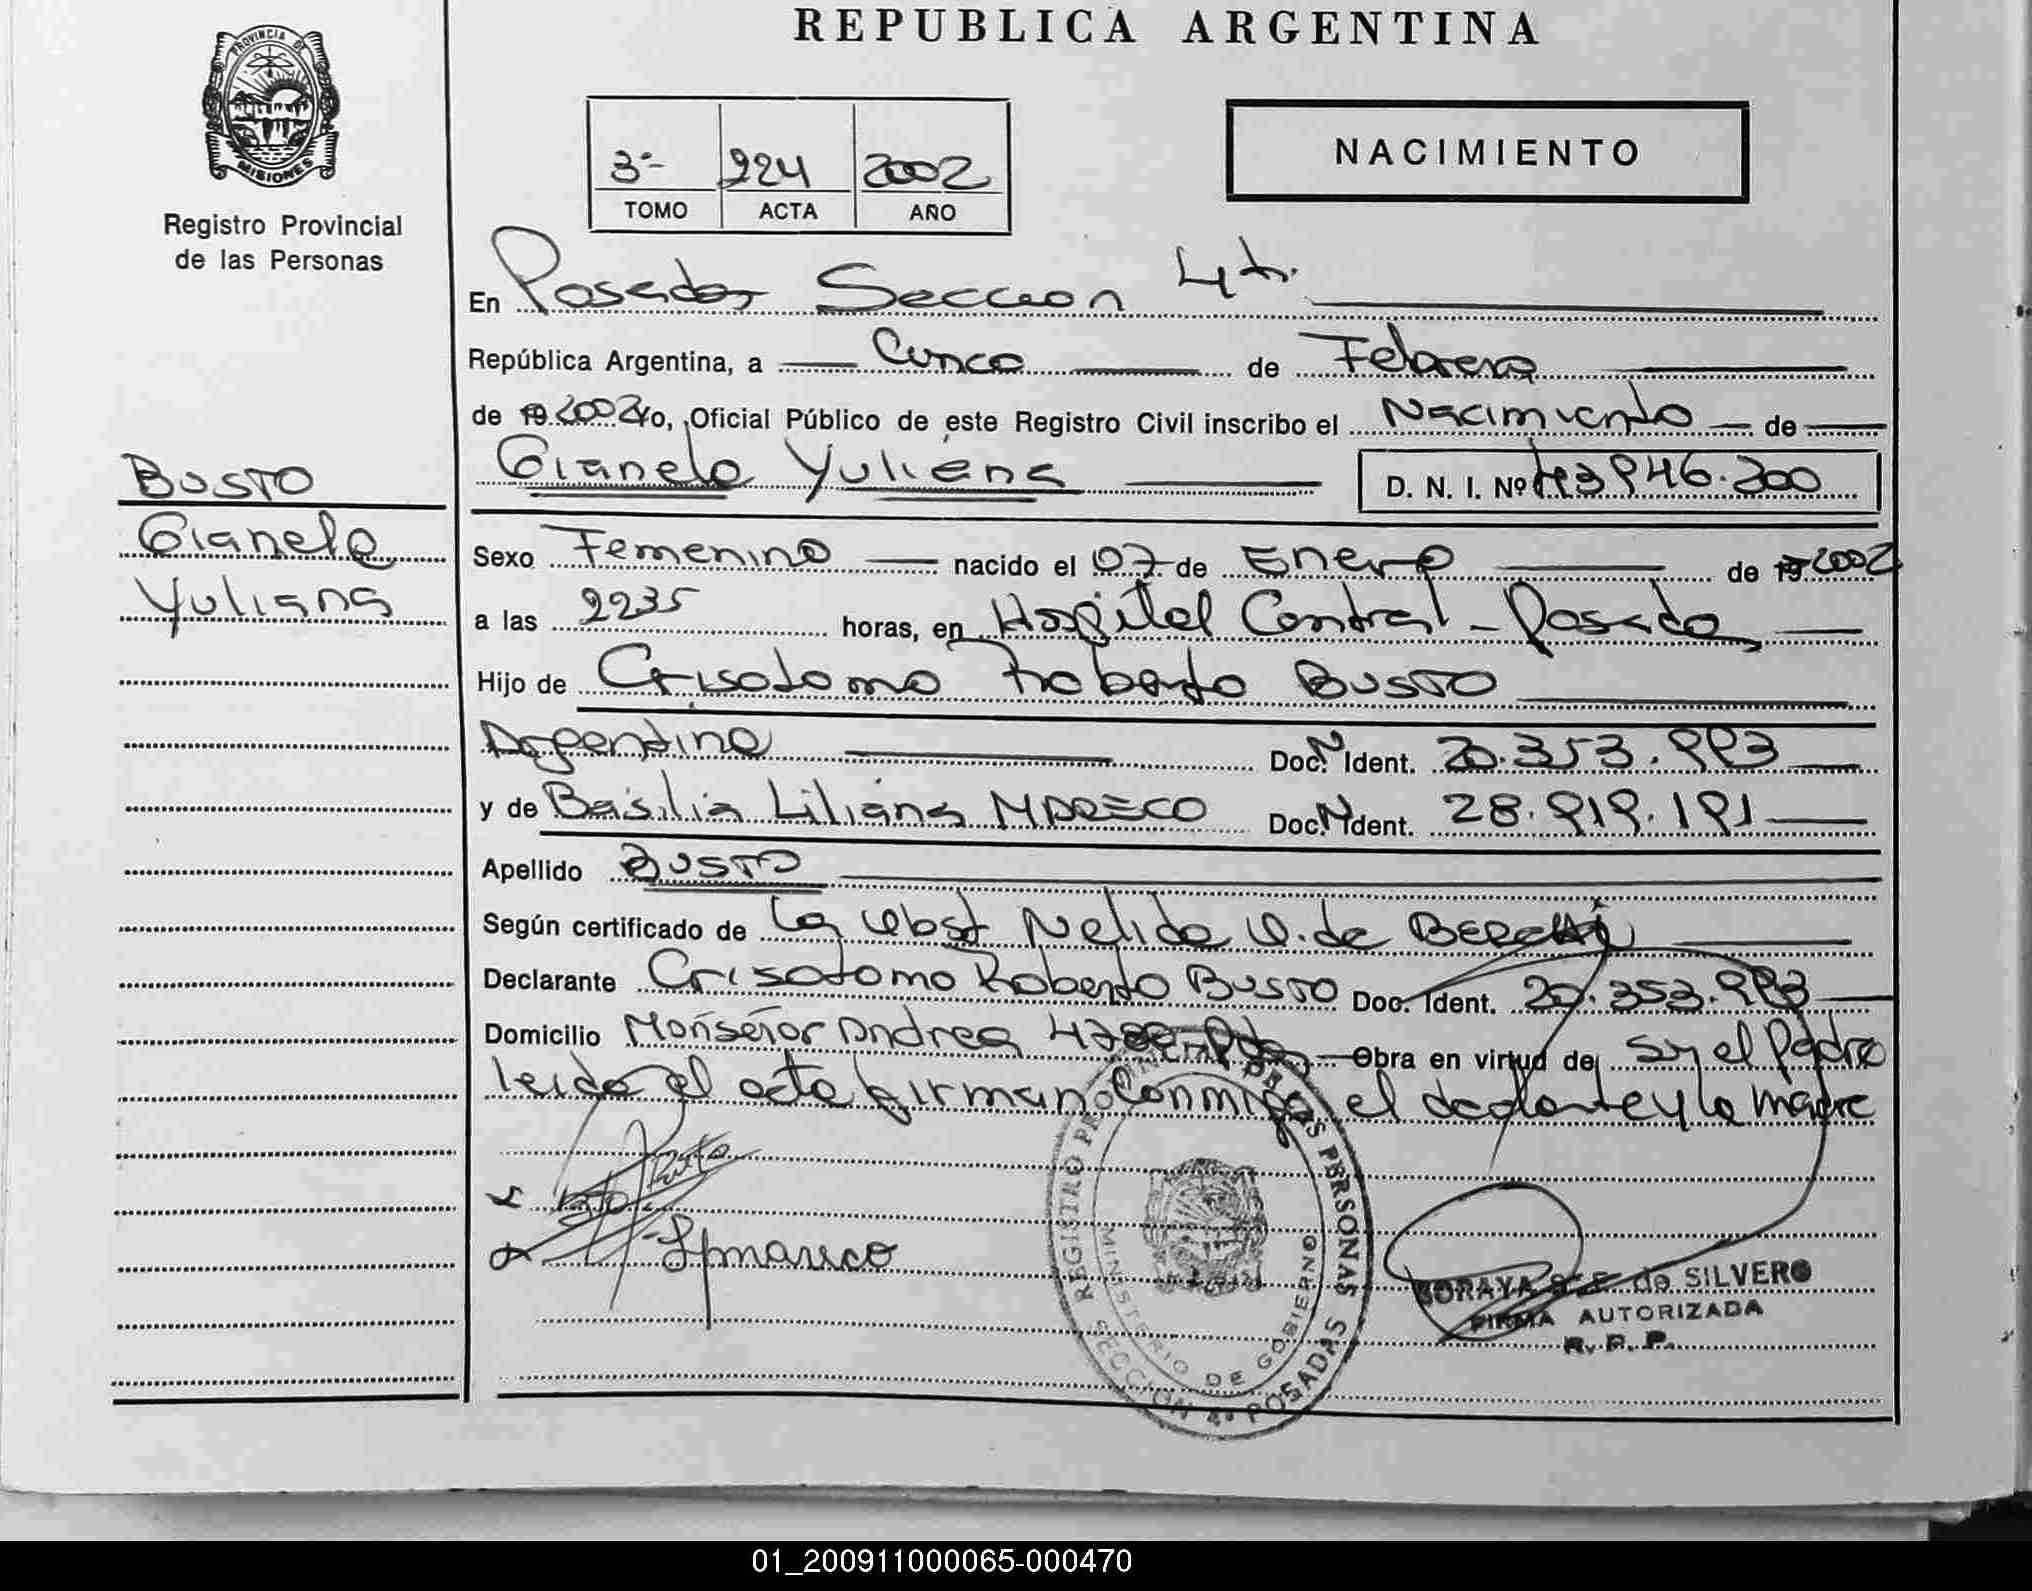 REPUBLICA ARGENTINA
PROVINCIA DE
MISIONES
Registro Provincial
de las Personas
3º 224 2002
TOMO ACTA AÑO
NACIMIENTO
En Posadas Seccion 4ta.
República Argentina, a Cinco de Febrero
de 19 2002 Yo, Oficial Público de este Registro Civil inscribo el Nacimiento de
Gianela Yuliana D. N. I. Nº 43946.300
BUSTO
Gianela
Yuliana
Sexo Femenino nacido el 07 de Enero de 19 2002
a las 2235 horas, en Hospital Central - Posadas
Hijo de Crisotomo Roberto BUSTO
Argentino Doc. N Ident. 20.353.993
y de Basilia Liliana MARECO Doc. N Ident. 28.919.191
Apellido BUSTO
Según certificado de la obst Nelida de
Declarante Crisotomo Roberto BUSTO Doc. Ident. 20.353.993
Domicilio Monseñor Andrea Obra en virtud de ser el Padre
leida el acta firman conmigo el declarante y la madre
REGISTRO DE LAS PERSONAS
MINISTERIO DE GOBIERNO
SECCION 4ª POSADAS
SORAYA de SILVERO
FIRMA AUTORIZADA
R. P. P.
01_200911000065-000470